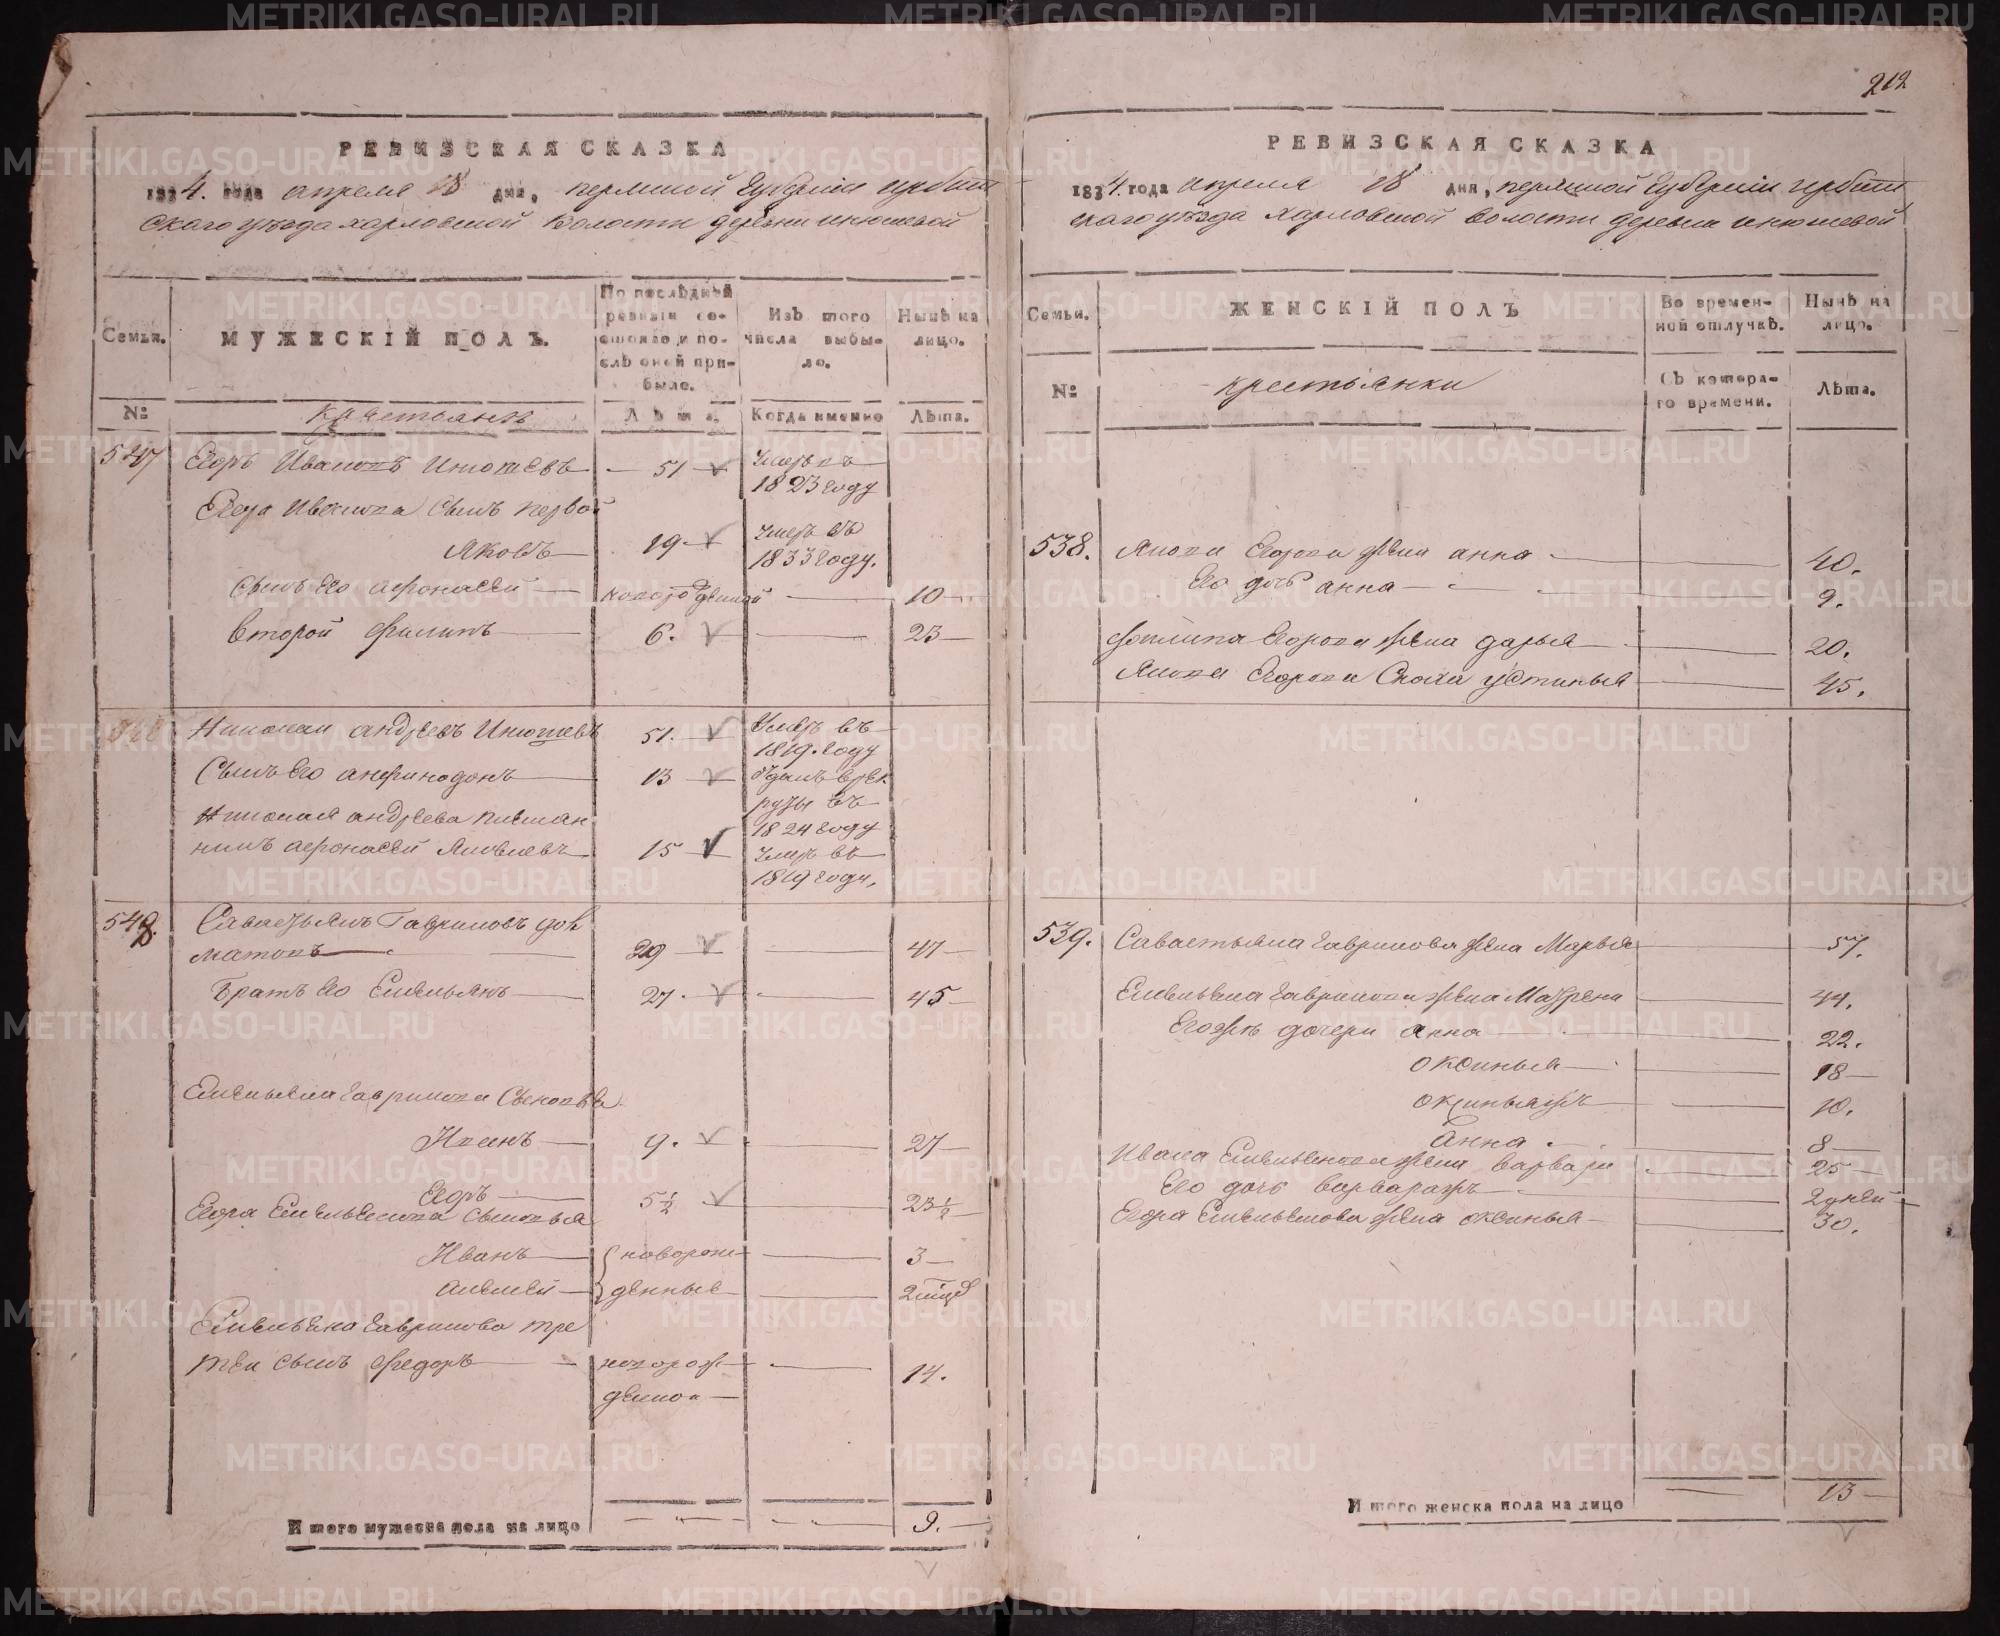 212
РЕВИЗСКАЯ СКАЗКА
1834. года апреля 18 дня, пермской губернии ирбит
скаго уезда харловской волости деревни инюшевой
Семьи.
МУЖЕСКІЙ ПОЛЪ.
По послѣдней ревизіи состояло и послѣ оной прибыло.
Изъ того числа выбыло.
Нынѣ на лицо.
№
крестьянъ
Лѣта.
Когда именно
Лѣта.
547 Егоръ Ивановъ Инюшевъ 51 умеръ въ
1823 году
Егора Иванова сынъ первой
Яковъ 19. умеръ въ
1833 году.
сынъ его афонасей новорожденной 10
второй филипъ 6. 23
Николаи андреевъ Инюшевъ 51. умеръ въ
1819. году
Сынъ его 13 отданъ врек
руты въ
1824 году
Николая андреева племян
никъ афонасей Яковлевъ 15 умеръ въ
1819 году,
548. Савастьянъ Гавриловъ дол
матовъ 29 47
Братъ его Емельянъ 27. 45
Емельяна гаврилова сыновья
Иванъ 9. 27
Егоръ 5½ 23½
Егора Емельянова сыновья
Иванъ новорож 3
алексей денные 2 месяца
Емельяна гаврилова тре
тей сынъ федоръ новорож
денной 14.
Итого мужеска пола на лицо 9.
РЕВИЗСКАЯ СКАЗКА
1834. года апреля 18 дня, пермской губернии ирбит
скаго уезда харловской волости деревни инюшевой
Семьи.
ЖЕНСКІЙ ПОЛЪ
Во временной отлучкѣ.
Нынѣ на лицо.
№
крестьянки
Съ котораго времени.
Лѣта.
538. Якова Егорова жена анна 40.
Его дочь анна 9.
филипа Егорова жена дарья 20.
Якова Егорова Сноха устинья 45.
539. Савастьяна гаврилова жена Марья 57.
Емельяна гаврилова жена Матрена 44.
Егожъ дочери анна 22.
оксинья 18
оксиньяжъ 10.
Анна 8
Ивана Емельянова жена варвара 25
Его дочь варваражъ 2 дней
Егора Емельянова жена оксинья 30.
Итого женска пола на лицо 13
METRIKI.GASO-URAL.RU